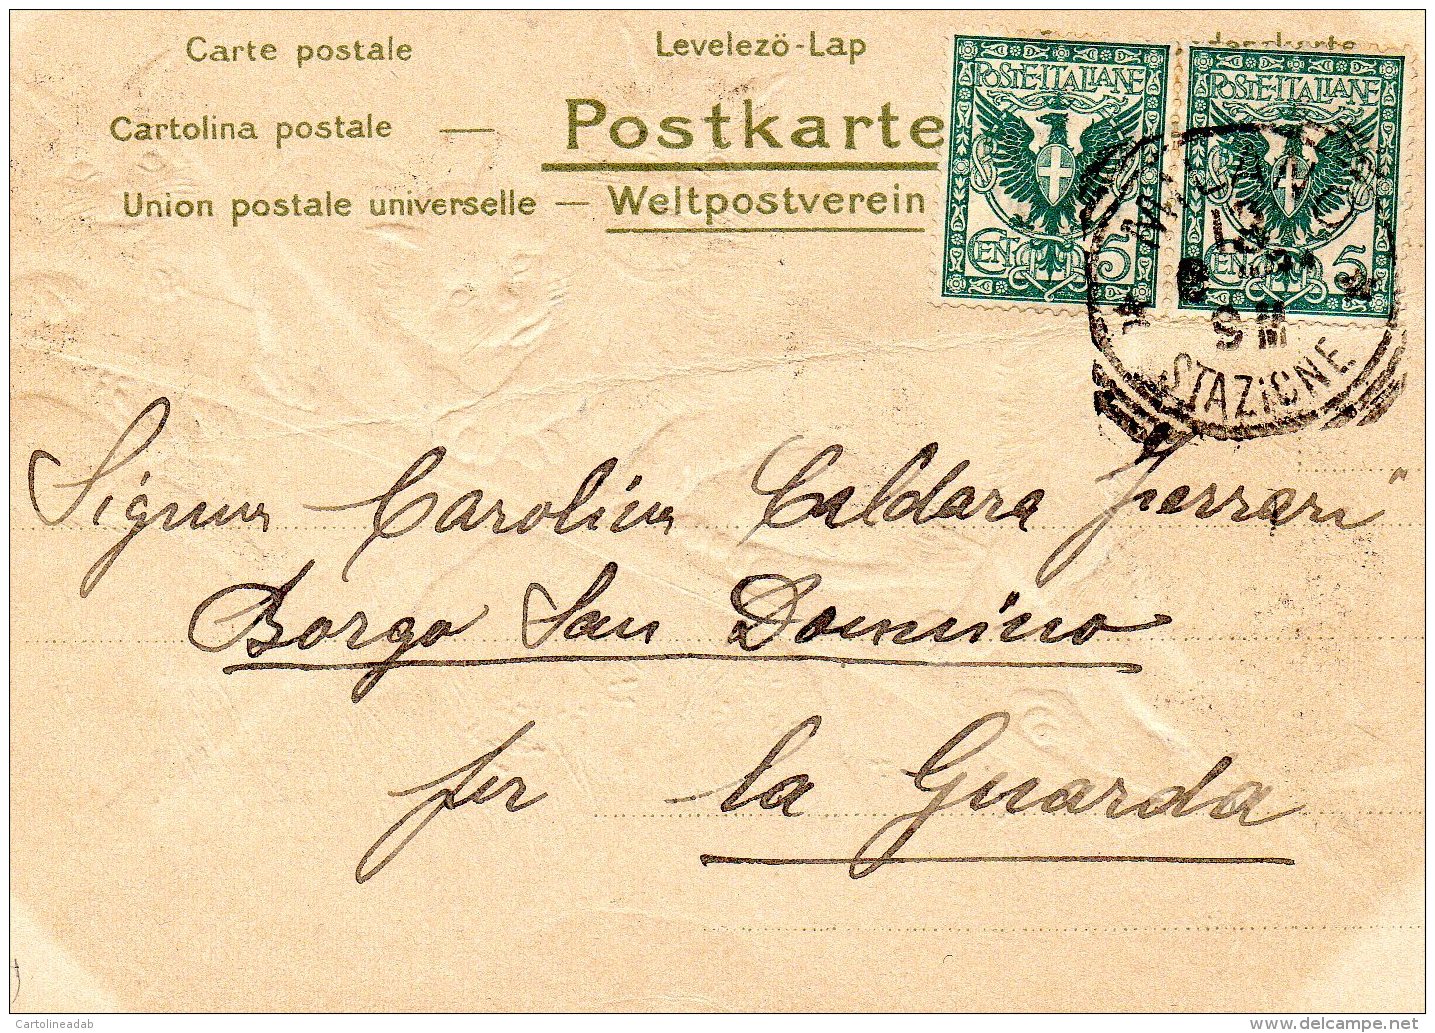 Carte postale
Levelezö-Lap
Cartolina postale — Postkarte
Union postale universelle — Weltpostverein
POSTE·ITALIANE
CENT 5
POSTE·ITALIANE
CENT 5
9 M
STAZIONE
Signora Carolina Caldara Ferrari
Borgo San Donnino
per la Guarda
Cartolineadab
delcampe.net